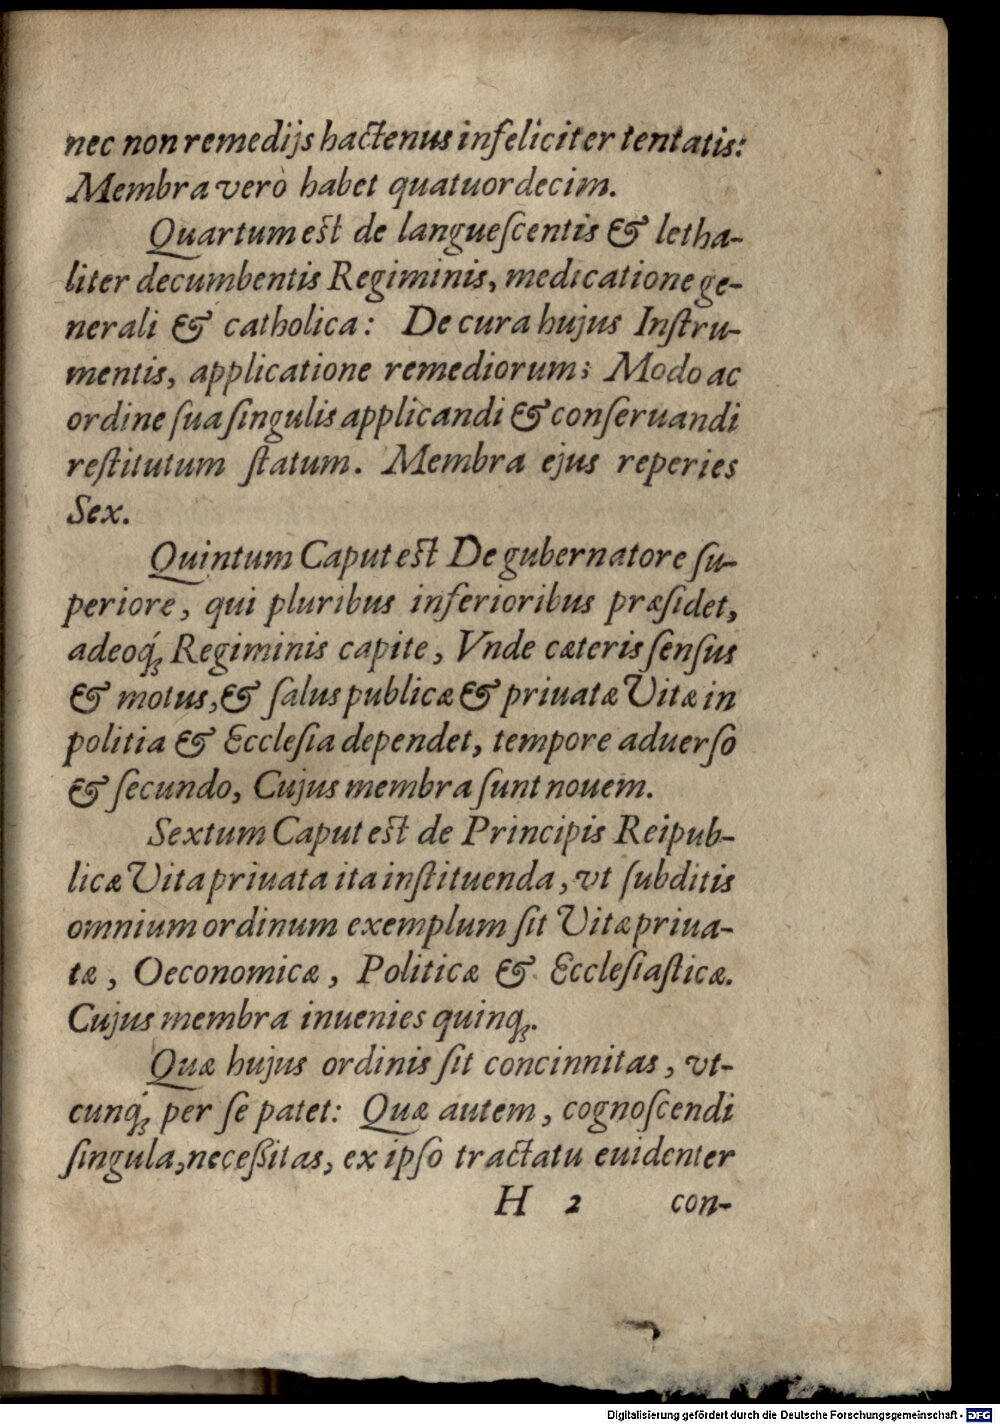 nec non remedijs hactenus infeliciter tentatis:
Membra verò habet quatuordecim.
Quartum est de langueſcentis & letha-
liter decumbentis Regiminis, medicatione ge-
nerali & catholica: De cura hujus Inſtru-
mentis, applicatione remediorum; Modo ac
ordine ſua ſingulis applicandi & conſeruandi
reſtitutum ſtatum. Membra ejus reperies
Sex.
Quintum Caput est De gubernatore ſu-
periore, qui pluribus inferioribus præſidet,
adeoq́; Regiminis capite, Vnde cæteris ſenſus
& motus, & ſalus publicæ & priuatæ Vitæ in
politia & Eccleſia dependet, tempore aduerſo
& ſecundo, Cujus membra ſunt nouem.
Sextum Caput est de Principis Reipub-
licæ Vita priuata ita inſtituenda, vt ſubditis
omnium ordinum exemplum ſit Vitæ priua-
tæ, Oeconomicæ, Politicæ & Eccleſiaſticæ.
Cujus membra inuenies quinq;.
Quæ hujus ordinis ſit concinnitas, vt-
cunq́; per ſe patet: Quæ autem, cognoſcendi
ſingula, neceßitas, ex ipſo tractatu euidenter
H 2 con-
Digitalisierung gefördert durch die Deutsche Forschungsgemeinschaft - DFG